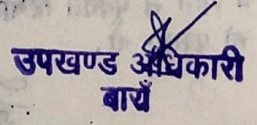 उपखण्ड अधिकारी
बायॅं